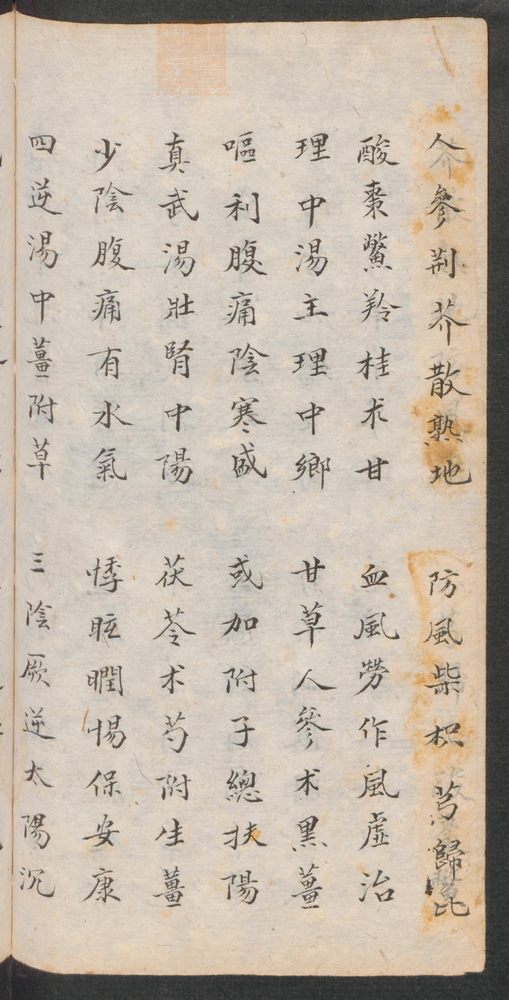 人參荆芥散熟地　防風柴枳芎歸比
酸棗鱉羚桂术甘　血風勞作風虛治
理中湯主理中鄉　甘草人參术黑薑
嘔利腹痛陰寒盛　或加附子總扶陽
真武湯壯腎中陽　茯苓术芍附生薑
少陰腹痛有水氣　悸眩瞤惕保安康
四逆湯中薑附草　三陰厥逆太陽沉